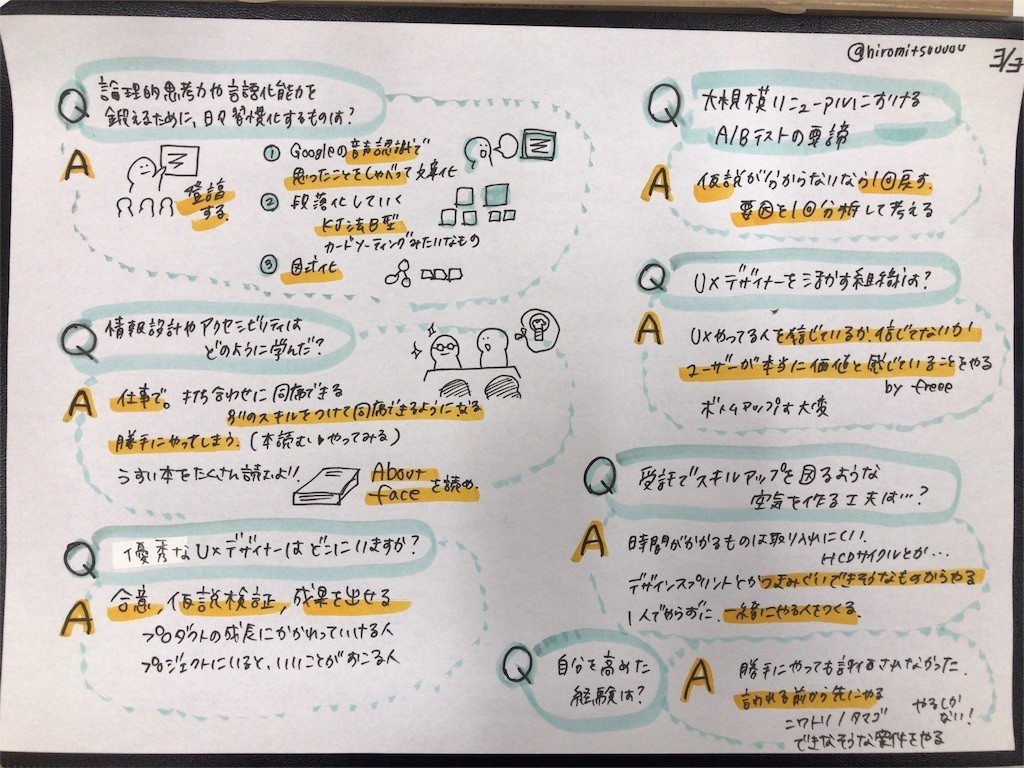 @hiromitsuuuuu
E/E
Q 論理的思考力や言語化能力を
鍛えるために、日々習慣化するものは?
A
登壇
する。
① Googleの音声認識で
思ったことをしゃべって文章化
② 段落化していく
KJ法B型
カードソーティングみたいなもの
③ 図式化
Q 情報設計やアクセシビリティは
どのように学んだ?
A 仕事で。打ち合わせに同席できる
別のスキルをつけて同席できるようになる
勝手にやってしまう。(本読む→やってみる)
うすい本をたくさん読むよ!!
About
face を読め。
Q 優秀なUXデザイナーはどこにいますか?
A 合意,仮説検証,成果を出せる
プロダクトの成長にかかわっていける人
プロジェクトにいると、いいことがおこる人
Q 大規模リニューアルにおける
A/Bテストの要諦
A 仮説が分からないなら1回戻す。
要因を1回分析して考える
Q UXデザイナーを活かす組織は?
A UXやってる人を信じているか、信じてないか
ユーザーが本当に価値と感じていることをやる
by freee
ボトムアップは大変
Q 受託でスキルアップを図るような
空気を作る工夫は…?
A 時間がかかるものは取り入れにくい
HCDサイクルとか…
デザインスプリントとかつまみぐいできそうなものからやる
1人でやらずに、一緒にやる人をつくる。
Q 自分を高めた
経験は?
A 勝手にやっても許されなかった
言われる前から先にやる
ニワトリ/タマゴ
やるしか
ない!
できなそうな案件をやる